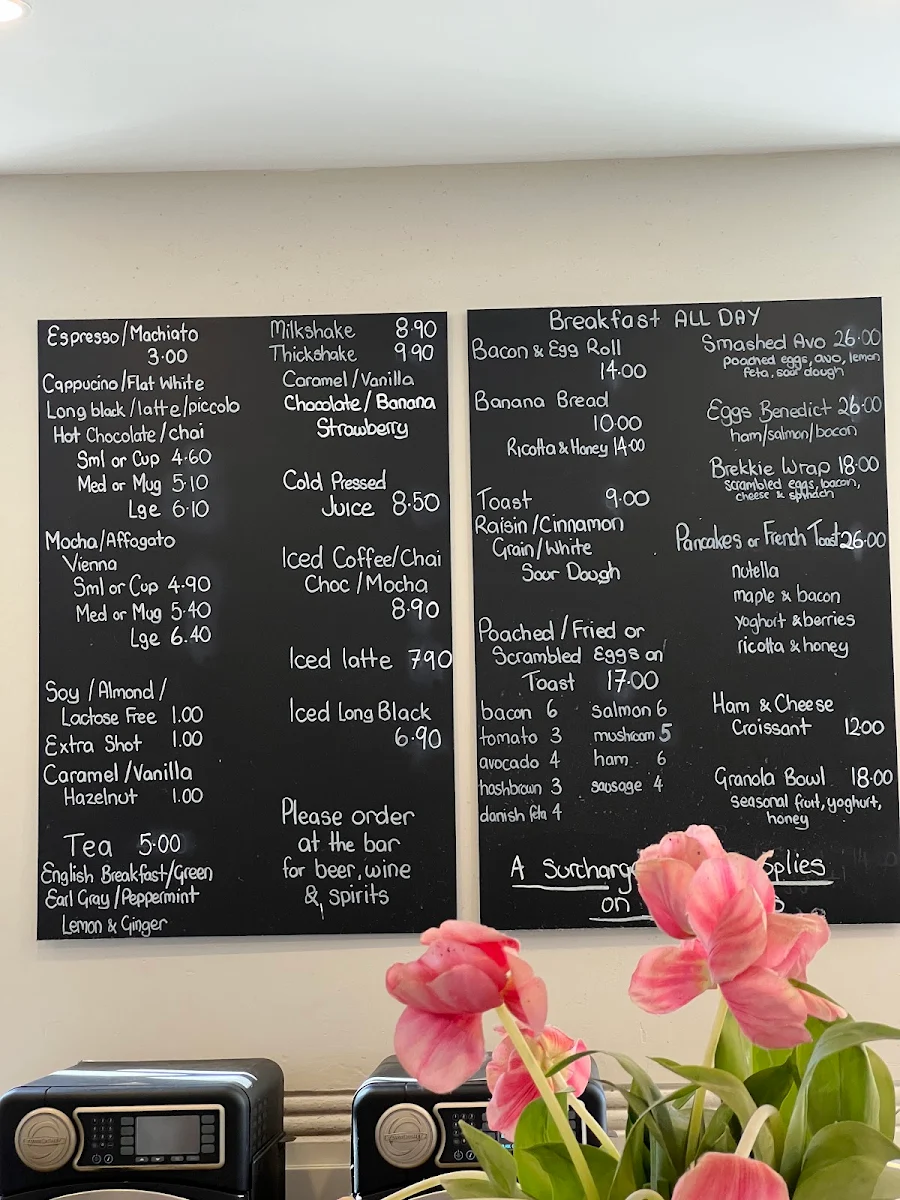 Espresso/Machiato
3.00
Cappucino/Flat White
Long black/latte/piccolo
Hot Chocolate/chai
Sml or Cup 4.60
Med or Mug 5.10
Lge 6.10
Mocha/Affogato
Vienna
Sml or Cup 4.90
Med or Mug 5.40
Lge 6.40
Soy/Almond/
Lactose Free 1.00
Extra Shot 1.00
Caramel/Vanilla
Hazelnut 1.00
Tea 5.00
English Breakfast/Green
Earl Gray/Peppermint
Lemon & Ginger
Milkshake 8.90
Thickshake 9.90
Caramel/Vanilla
Chocolate/Banana
Strawberry
Cold Pressed
Juice 8.50
Iced Coffee/Chai
Choc/Mocha
8.90
Iced latte 7.90
Iced Long Black
6.90
Please order
at the bar
for beer, wine
& spirits
Breakfast ALL DAY
Bacon & Egg Roll
14.00
Banana Bread
10.00
Ricotta & Honey 14.00
Toast 9.00
Raisin/Cinnamon
Grain/White
Sour Dough
Poached/Fried or
Scrambled Eggs on
Toast 17.00
bacon 6 salmon 6
tomato 3 mushroom 5
avocado 4 ham 6
hashbrown 3 sausage 4
danish feta 4
Smashed Avo 26.00
poached eggs, avo, lemon
feta, sour dough
Eggs Benedict 26.00
ham/salmon/bacon
Brekkie Wrap 18.00
scrambled eggs, bacon,
cheese & spinach
Pancakes or French Toast 26.00
nutella
maple & bacon
yoghort & berries
ricotta & honey
Ham & Cheese
Croissant 12.00
Granola Bowl 18.00
seasonal fruit, yoghurt,
honey
A Surcharg plies
on